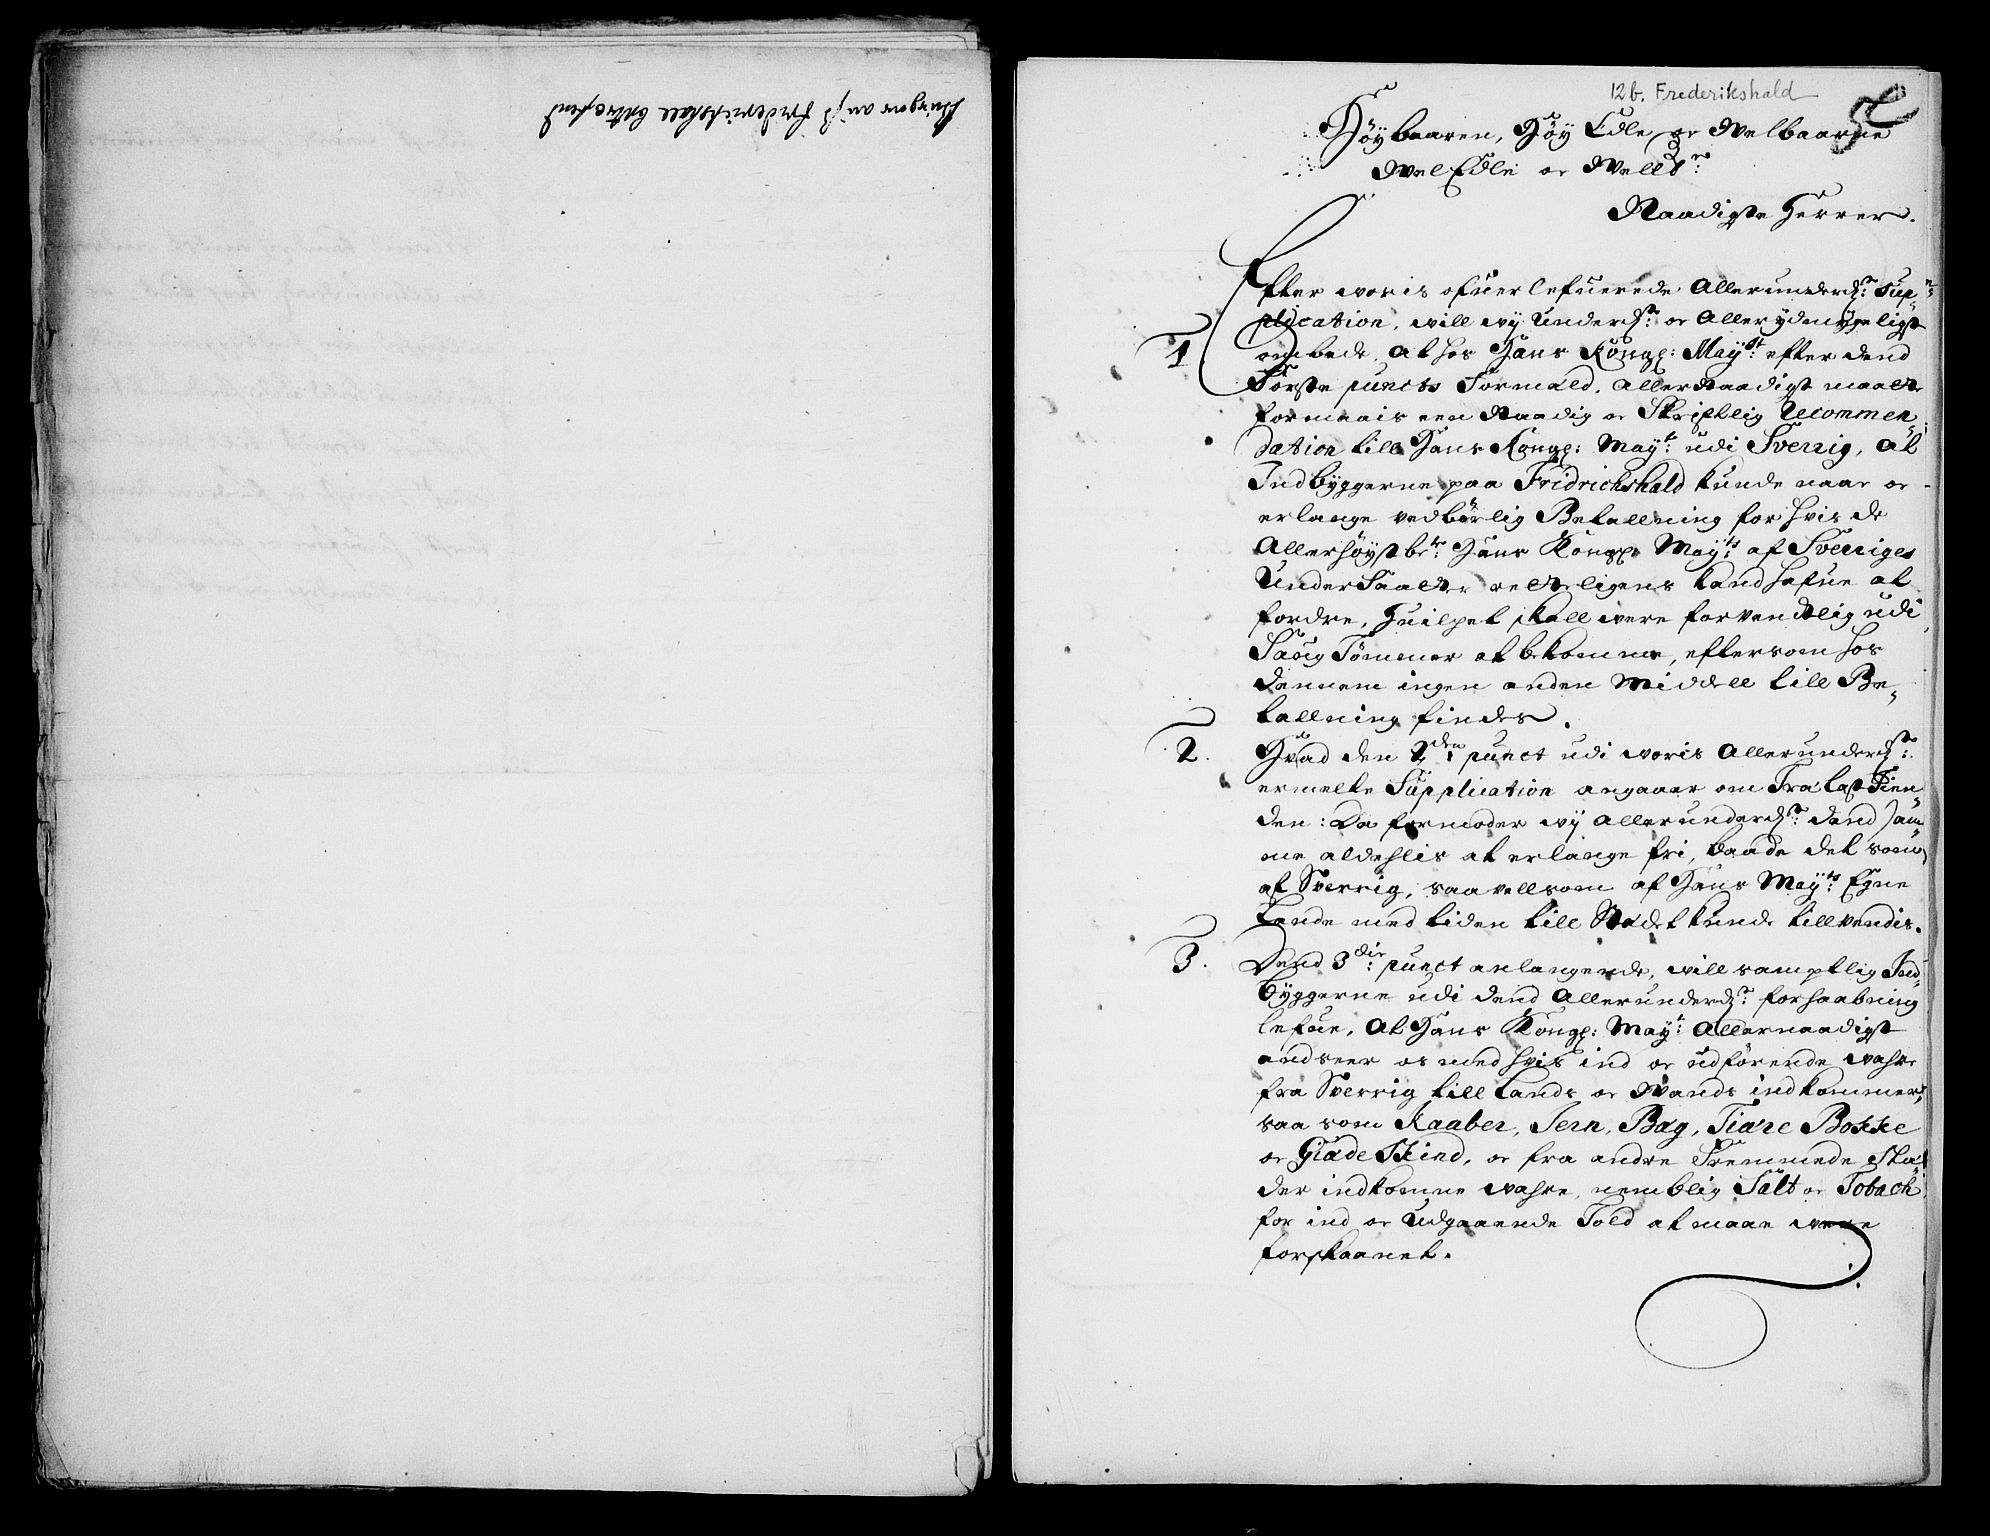 Borgerne aff Frederickshall betræfend
12b. Frederikshald
Höybaaren, Höy Edle og Welbaarne
WelEdle og Welbr:
Naadigste Herrer.
Efter woris ofuerlefuerede Allerunderdst: Sup-
plication, will wij Underdst: og Allerydmygeligst
1 ombede, At hos Hans Kongl: Mayst: efter dend
Förste puncts Formæld, Allernaadigst maatte
formaais een Naadig og Skriftlig Recommen
dation till Hans Kongl: Mayt: udi Sverrig, At
Indbÿggerne paa Fridrichshald kunde naae og
erlange vedbörlig Betallning for hvis de
Allerhöystbte: Hans Kongl: Mayts: af Sverriges
UnderSaatter retteligens kand hafue at
fordre, Huilchet skall were forventlig udi
Saug Tömmer at bekomme, eftersom hos
dennem ingen anden Middell till Be-
tallning findes.
2. Hvad den 2den: punct udi woris Allerunderdst:
ermelte Supplication angaaer om Tra last Tien
den: Da formoder wij Allerunderdst: dend Sam
me aldehlis at erlange fri, baade det som
af Sverrig, saavellsom af Hans Mayts: Egne
Lande med tiden till Stædet kunde tillvendis.
3. Dend 3die: punct anlangende, will samptlig Ind-
byggerne udi dend Allerunderdst: forhaabning
lefue, At Hans Kongl: Mayt: Allernaadigst
andseer os med hvis ind og udförende wahre
fra Sverrig till Lands og Wands indkommer,
saa som Kaaber, Jern, Bæg, Tiære Bokke
og Giæde Skind, og fra andre Fremmede Stæ
der indkomne wahre, nemblig Salt og Toback
for ind og Udgaaende Told at maae were
forskaanet.